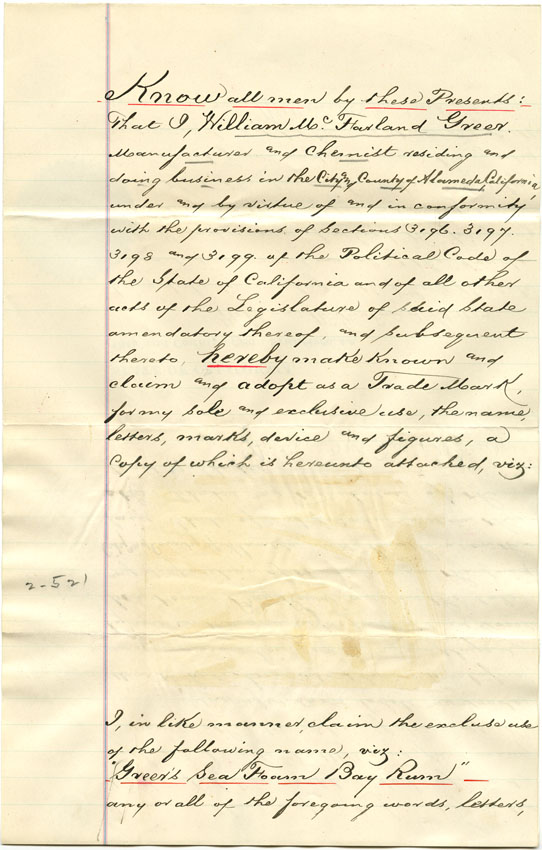 Know all men by these Presents:
That I, William Mc Farland Greer.
Manufacturer and Chemist residing and
doing business in the City & County of Alameda, California,
under and by virtue of and in conformity
with the provisions of Sections 3196. 3197.
3198 and 3199. of the Political Code of
the State of California and of all other
acts of the Legislature of said State
amendatory thereof, and subsequent
thereto, hereby make known and
claim and adopt as a Trade Mark,
for my sole and exclusive use, the name,
letters, marks, device and figures, a
copy of which is hereunto attached, viz:
2-521
I, in like manner, claim the excluse use
of the following name, viz:
"Greer's Sea Foam Bay Rum"
any or all of the foregoing words, letters,